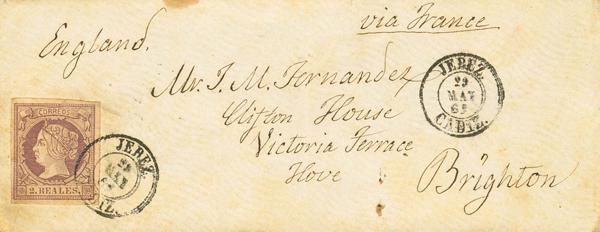 via France
England.
Mr. J. M. Fernandez
Clifton House
Victoria Terrace
Hove
Brighton
JEREZ.
29
MAY
CADIZ.
CORREOS
2. REALES.
JEREZ.
MAY